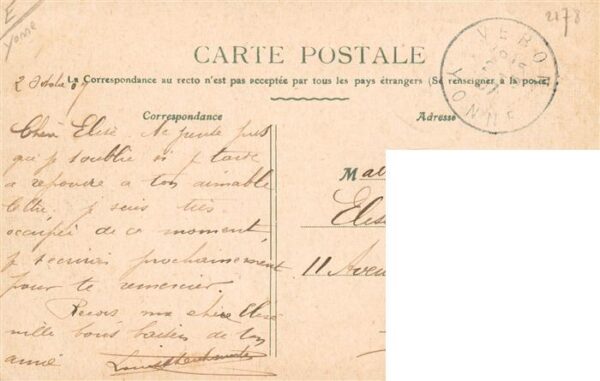 E
Yonne
2178
VERON
YONNE
CARTE POSTALE
2 Octobre 07
La Correspondance au recto n'est pas acceptée par tous les pays étrangers (Se renseigner à la poste)
Correspondance
Adresse
Chère Elise. Ne pense pas
que j'oublie si j tarde
a repondre a ton aimable
lettre. j suis très
occupée de ce moment
j'ecrirai prochainement
pour te remercier.
Reçois ma chère Elise
mille bons baisers de ton
amie
M
Elis
11 Aven